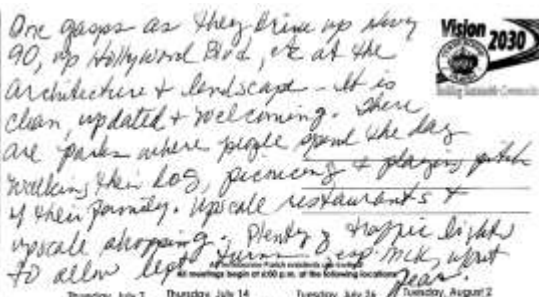 One gasps as they drive up Hwy
90, up Hollywood Blvd, etc at the
architecture + landscape - It is
clean, updated + welcoming. There
are parks where people spend the day
walking their dog, picnicing + playing pitch
w their family. Upscale restaurants +
upscale shopping. Plenty of traffic lights
to allow left turns, esp MLK, West
All meetings begin at 6:00 p.m. at the following locations
Thursday, July 7 Thursday, July 14 Tuesday, July 26 Tuesday, August 2
Vision 2030
Building Sustainable Communities